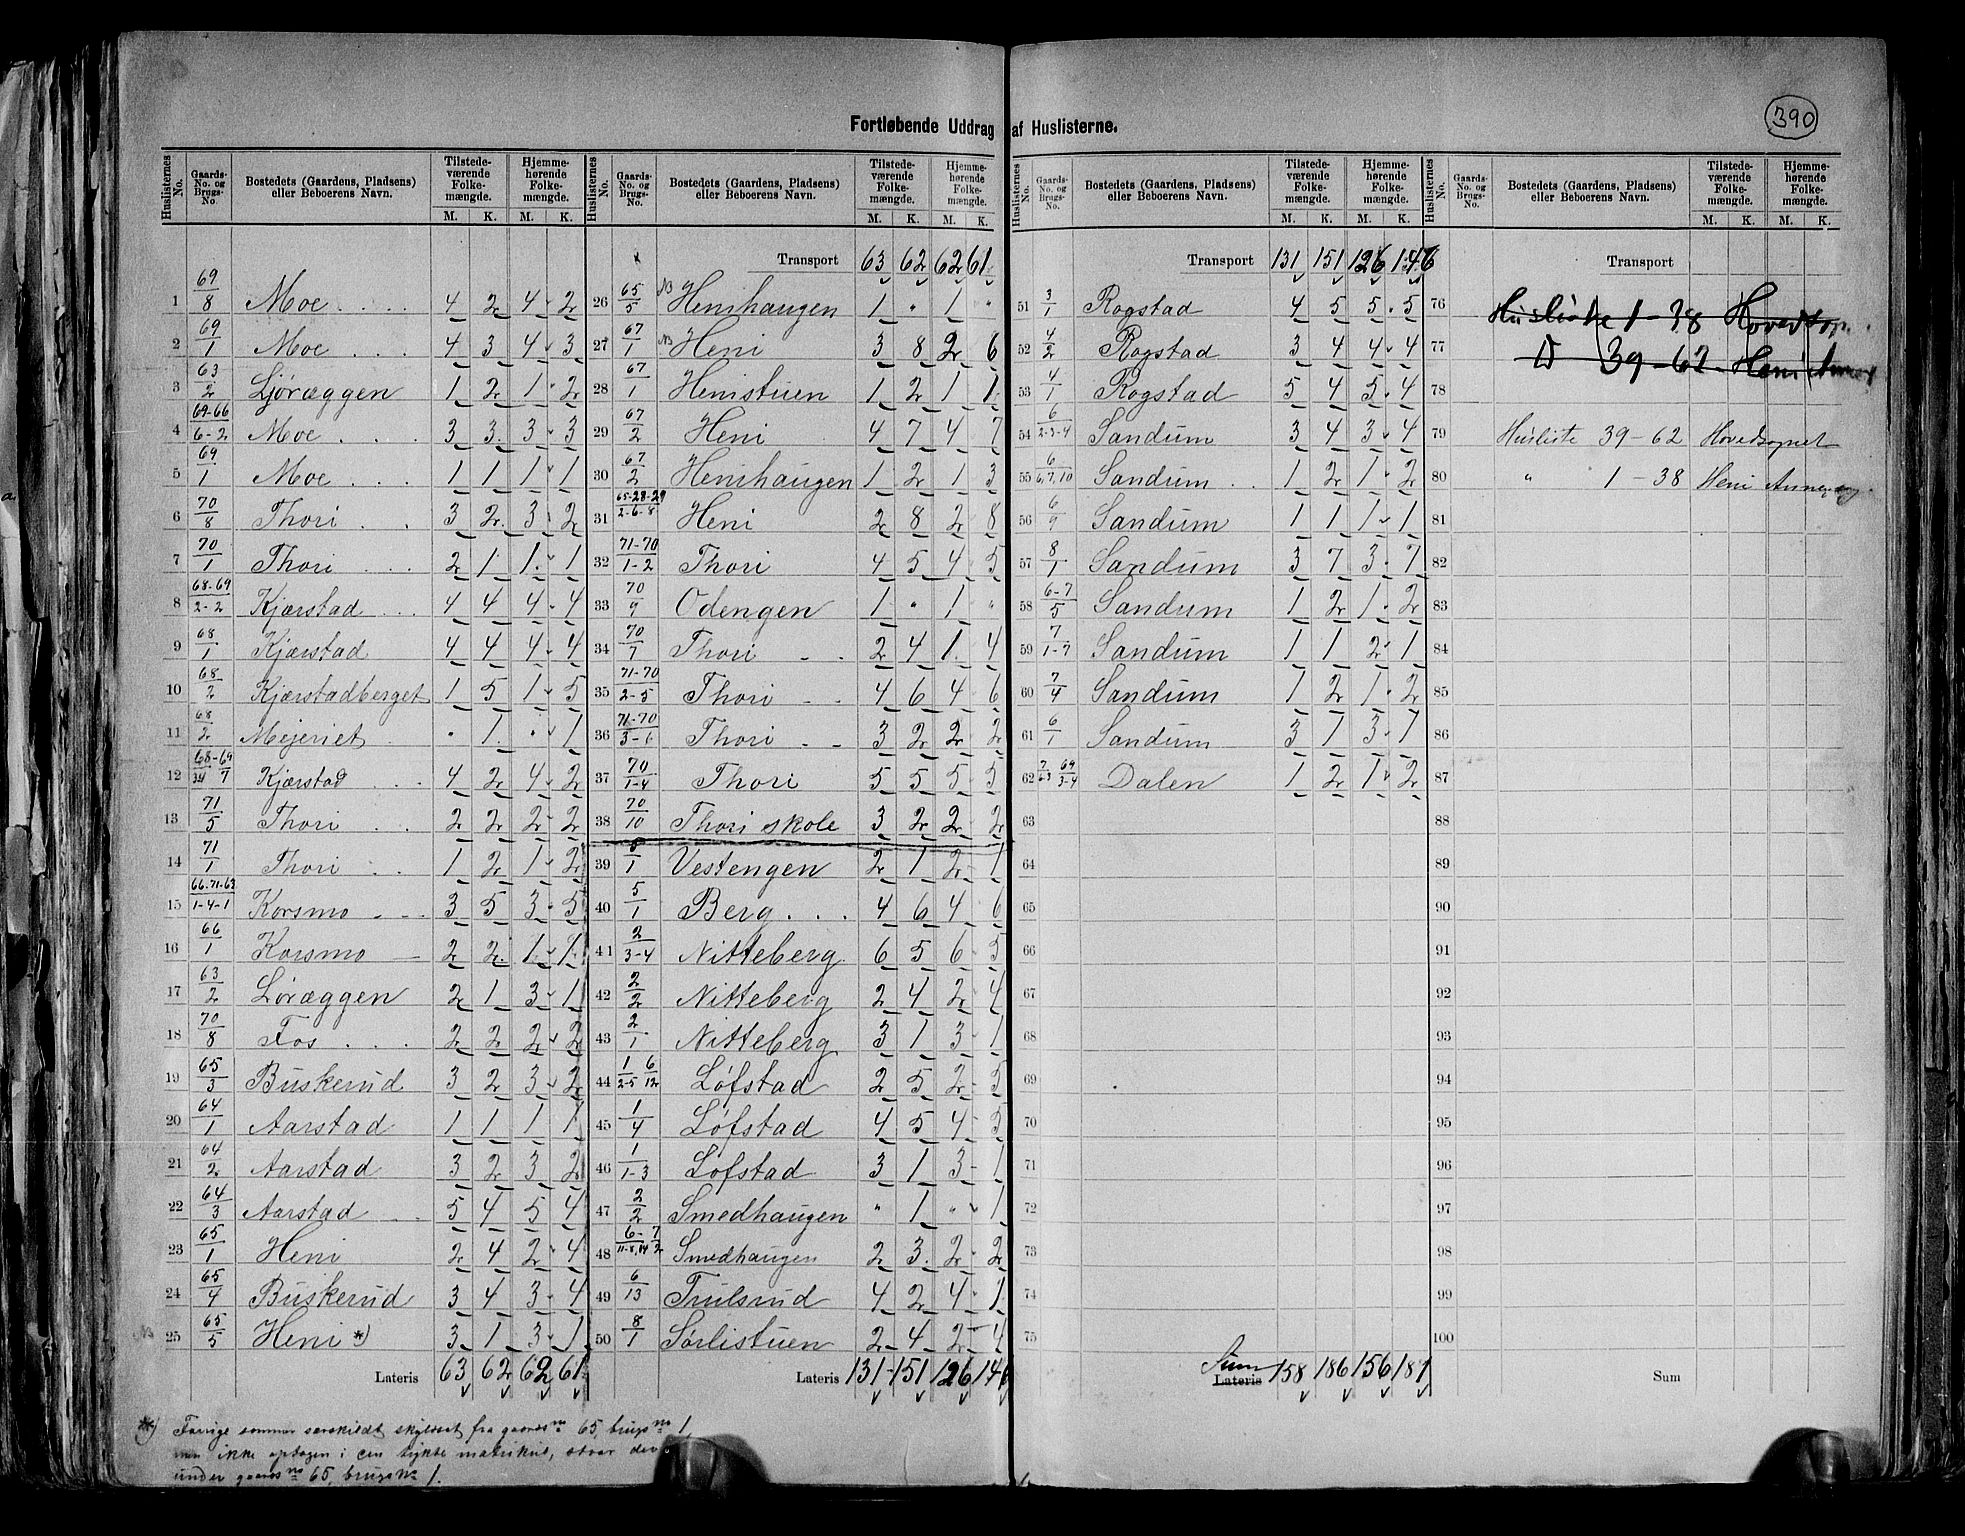 390
Fortløbende Uddrag af Huslisterne.
Huslisternes No. | Gaards-No. og Brugs-No. | Bostedets (Gaardens, Pladsens) eller Beboerens Navn. | Tilstedeværende Folkemængde. M. K. | Hjemmehørende Folkemængde. M. K.
1 69/8 Moe . . . . 4 2 4 2
2 69/1 Moe . . . 4 3 4 3
3 63/2 Ljøræggen 1 2 1 2
4 69-66/6-2 Moe . . . 3 3 3 3
5 69/1 Moe . . . 1 1 1 1
6 70/8 Thori . . 3 2 3 2
7 70/1 Thori . . . 2 1 1 1
8 68-69/2-2 Kjærstad . . . 4 4 4 4
9 68/1 Kjærstad 4 4 4 4
10 68/2 Kjærstadberget 1 5 1 5
11 68/2 Mejeriet . " 1 " 1
12 68-69/34 7 Kjærstad . . . 4 2 4 2
13 71/5 Thori . . 2 2 2 2
14 71/1 Thori . . 1 2 1 2
15 66-71-63/1-4-1 Korsmo - - - 3 5 3 5
16 66/1 Korsmo - 2 2 1 1
17 63/2 Løræggen 2 1 3 1
18 70/8 Fos . . . 2 2 2 2
19 65/3 Buskerud 3 2 3 2
20 64/1 Aarstad 1 1 1 1
21 64/2 Aarstad 3 2 3 2
22 64/3 Aarstad 5 4 5 4
23 65/1 Heni 2 4 2 4
24 65/4 Buskerud 3 4 3 4
NB 25 65/5 Heni *) 3 1 3 1
Lateris 63 62 62 61
Huslisternes No. | Gaards-No. og Brugs-No. | Bostedets (Gaardens, Pladsens) eller Beboerens Navn. | Tilstedeværende Folkemængde. M. K. | Hjemmehørende Folkemængde. M. K.
Transport 63 62 62 61
26 65/5 NB Henihaugen 1 " 1 "
27 67/1 NB Heni 3 8 2 6
28 67/1 Henistuen 1 2 1 1
29 67/2 Heni 4 7 4 7
30 67/2 Henihaugen 1 2 1 3
31 65-28-29/2-6-8 Heni 2 8 2 8
32 71-70/1-2 Thori 4 5 4 5
33 70/9 Odengen 1 " 1 "
34 70/7 Thori - . 2 4 1 4
35 71-70/2-5 Thori - - 4 6 4 6
36 71-70/3-6 Thori - - 3 2 2 2
37 70/1-4 Thori 5 5 5 5
38 70/10 Thori skole 3 2 2 2
39 8/1 Vestengen 2 1 2 1
40 5/1 Berg . . . 4 6 4 6
41 2/3-4 Nitteberg 6 5 6 5
42 2/2 Nitteberg 2 4 2 4
43 2/1 Nitteberg 3 1 3 1
44 1/2-5 6/12 Løfstad 2 5 2 5
45 1/4 Løfstad 4 5 4 5
46 1/1-3 Løfstad 3 1 3 1
47 2/2 Smedhaugen " 1 " 1
48 6-7/11-8,14 2 Smedhaugen 2 3 2 2
49 6/13 Trulsrud 4 2 4 1
50 8/1 Sørlistuen 2 4 2 4
Lateris 131 151 126 146
Huslisternes No. | Gaards-No. og Brugs-No. | Bostedets (Gaardens, Pladsens) eller Beboerens Navn. | Tilstedeværende Folkemængde. M. K. | Hjemmehørende Folkemængde. M. K.
Transport 131 151 126 146
51 3/1 Rogstad 4 5 5 5
52 4/2 Rogstad 3 4 4 4
53 4/1 Rogstad 5 4 5 4
54 6/2-3-4 Sandum 3 4 3 4
55 6/6,7,10 Sandum . . 1 2 1 2
56 6/9 Sandum 1 1 1 1
57 8/1 Sandum 3 7 3 7
58 6-7/5 Sandum 1 2 1 2
59 7/1-7 Sandum 1 1 2 1
60 7/4 Sandum 1 2 1 2
61 6/1 Sandum 3 1 3 1
62 7/6-3 69/3-4 Dalen 1 2 1 2
63
64
65
66
67
68
69
70
71
72
73
74
75
Sum
Lateris 158 186 156 181
Huslisternes No. | Gaards-No. og Brugs-No. | Bostedets (Gaardens, Pladsens) eller Beboerens Navn. | Tilstedeværende Folkemængde. M. K. | Hjemmehørende Folkemængde. M. K.
Transport
76 Husliste 1-38 Hovedsogn
77 D 39-62 Heni Annex
78
79 Husliste 39-62 Hovedsognet
80 " 1-38 Heni Annexsogn
81
82
83
84
85
86
87
88
89
90
91
92
93
94
95
96
97
98
99
100
Sum
*) Forrige sommer særskildt skyldsat fra gaards no 65, brugs no 1,
men ikke optagen i den trykte matrikul, staar der
under gaards no 65, brugs no 1.